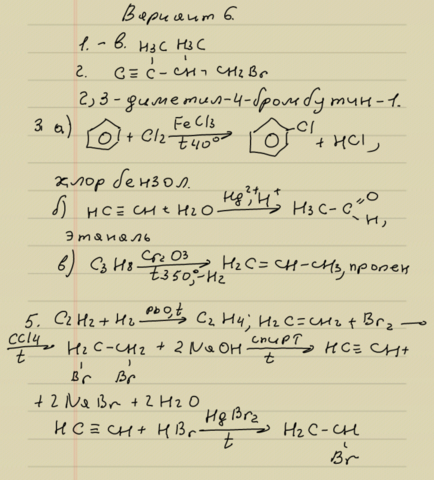 Вариант 6.
1. - в. H3C H3C
2. C≡C-CH-CH2Br
2,3-диметил-4-бромбутин-1.
3 а) + Cl2 FeCl3 t40° Cl + HCl,
хлор бензол.
б) HC≡CH+H2O Hg2+,H+ H3C-C=O H,
этаналь
в) C3H8 Cr2O3 t350°,-H2 H2C=CH-CH3, пропен
5. C2H2+H2 PbO,t C2H4; H2C=CH2+Br2 →
CCl4 t H2C-CH2 + 2NaOH спирт t HC≡CH+
Br Br
+2NaBr+2H2O
HC≡CH+HBr HgBr2 t H2C-CH
Br